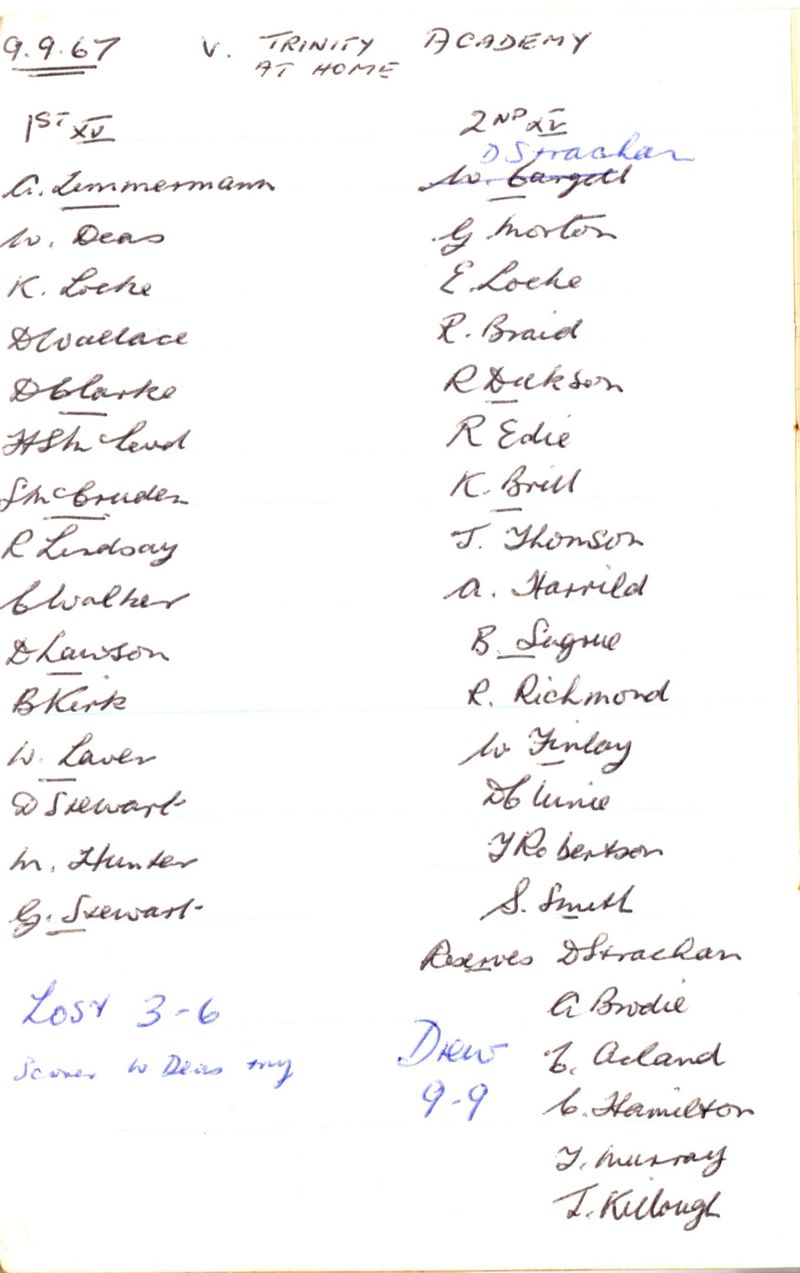 9.9.67 V. TRINITY ACADEMY
AT HOME
1ST XV
A. Zimmermann
W. Deas
K. Locke
D Wallace
D Clarke
H S McLeod
S McCruden
R Lindsay
C Walker
D Lawson
B Kirk
W. Laver
D Stewart
M. Hunter
G. Stewart
LOST 3-6
Scorer W Deas try
2ND XV
D Strachan
W. Cargill
G Morton
E. Locke
R. Braid
R Dickson
R Edie
K. Brill
J. Thomson
A. Harrild
B. Sugrue
R. Richmond
W Finlay
D Clunie
J Robertson
S. Smith
Reserves D Strachan
A Brodie
Acland
C. Hamilton
J. Murray
J. Killough
Drew
9-9